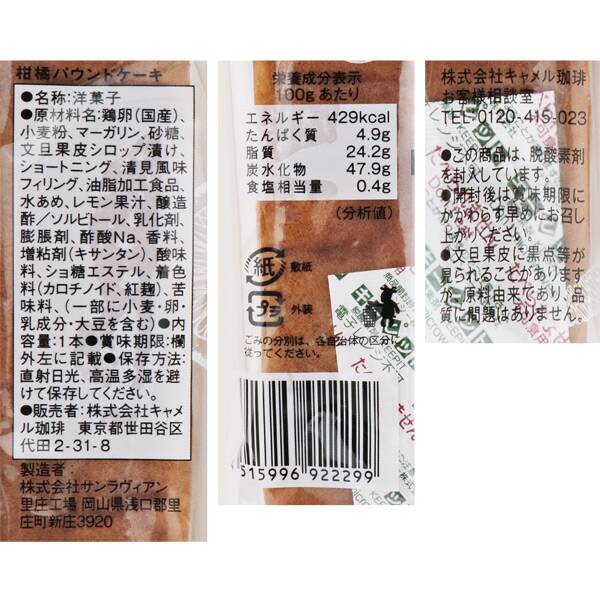 柑橘パウンドケーキ
●名称:洋菓子
●原材料名:鶏卵(国産)、
小麦粉、マーガリン、砂糖、
文旦果皮シロップ漬け、
ショートニング、清見風味
フィリング、油脂加工食品、
水あめ、レモン果汁、醸造
酢/ソルビトール、乳化剤、
膨脹剤、酢酸Na、香料、
増粘剤(キサンタン)、酸味
料、ショ糖エステル、着色
料(カロチノイド、紅麹)、苦
味料、(一部に小麦・卵・
乳成分・大豆を含む)●内
容量:1本●賞味期限:欄
外左に記載●保存方法:
直射日光、高温多湿を避
けて保存してください。
●販売者:株式会社キャメ
ル珈琲 東京都世田谷区
代田2-31-8
製造者:
株式会社サンラヴィアン
里庄工場 岡山県浅口郡里
庄町新庄3920
栄養成分表示
100gあたり
エネルギー 429kcal
たんぱく質 4.9g
脂質 24.2g
炭水化物 47.9g
食塩相当量 0.4g
(分析値)
紙 敷紙
プラ 外装
ごみの分別は、各自治体の区分に
従ってください。
515996 922299
株式会社キャメル珈琲
お客様相談室
TEL 0120-415-023
●この商品は、脱酸素剤
を封入しています。
●開封後は賞味期限に
かかわらず早めにお召し
上がりください。
●文旦果皮に黒点等が
見られることがあります
が、原料由来であり、品
質に問題はありません。